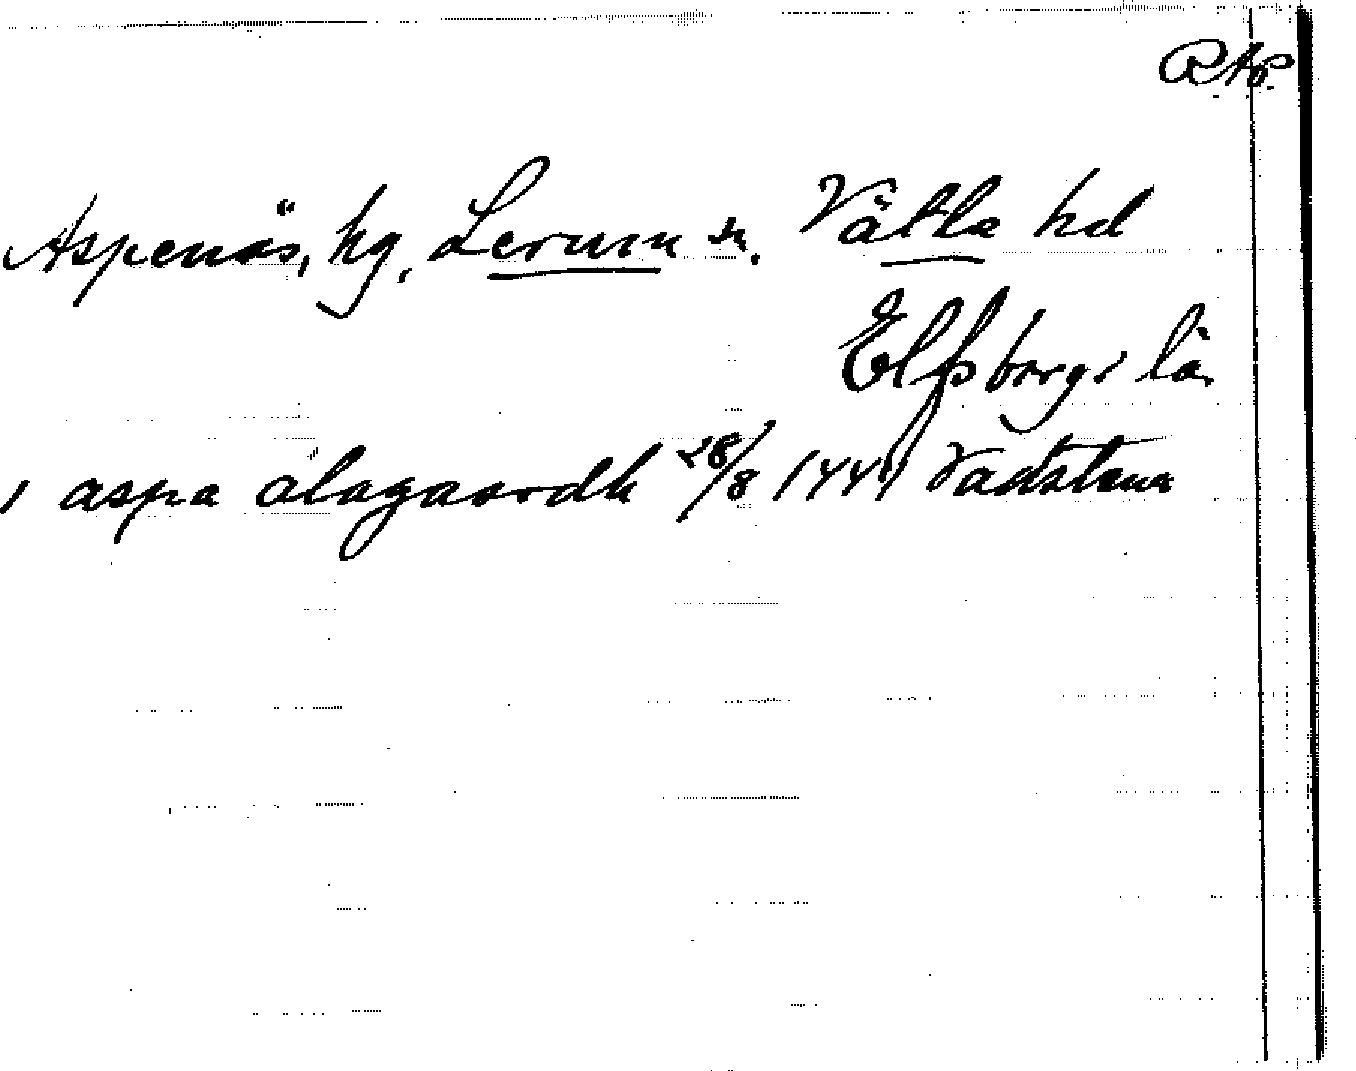 RAp.
Aspenäs, hg. Lerum sn. Vätle hd
Elfsborgs län
i aspa alagaardh 28/8 1444 Vadstena